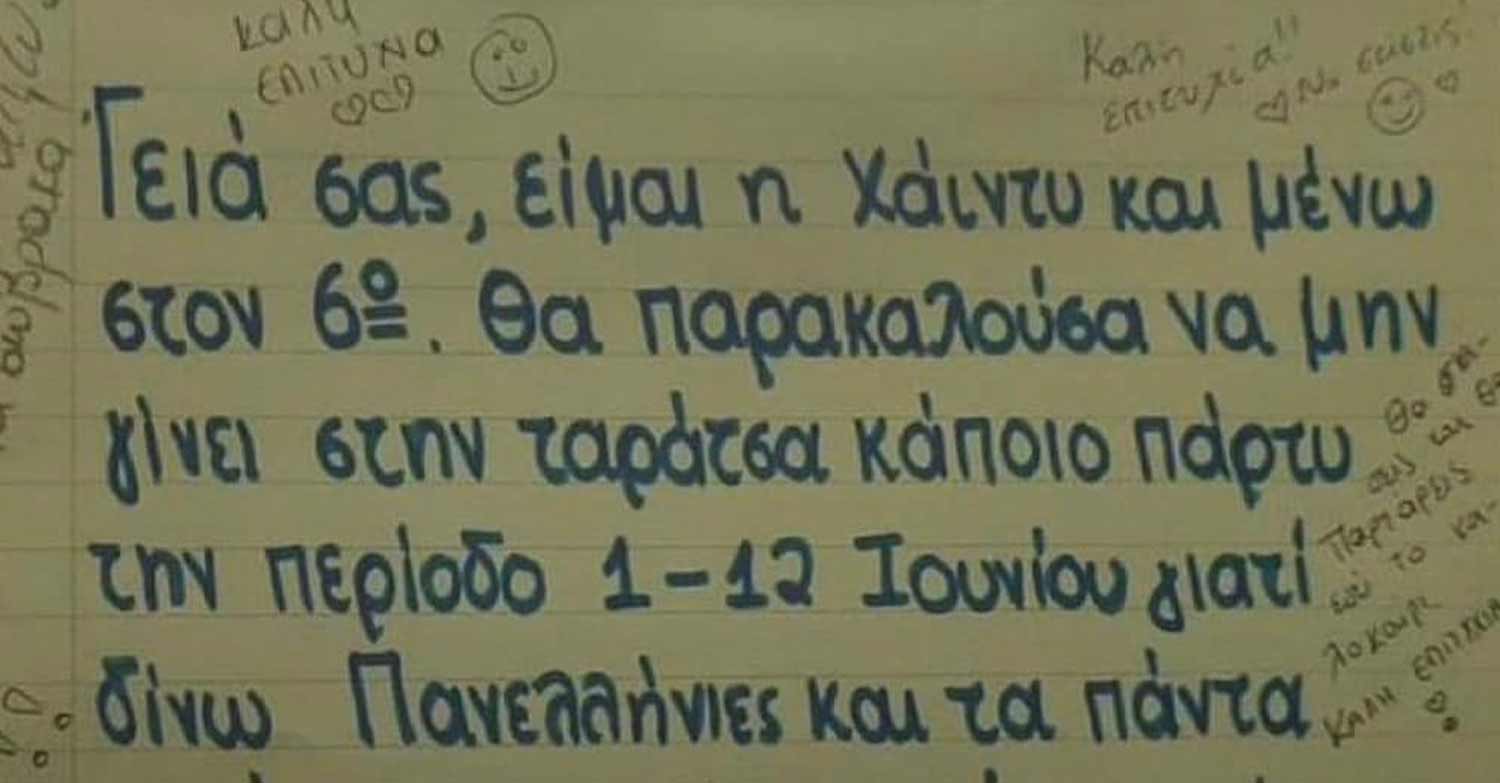 καλη
επιτυχια
Καλή
επιτυχία!!
Γειά σας, είμαι η Χάιντυ και μένω
στον 6º. Θα παρακαλούσα να μην
γίνει στην ταράτσα κάποιο πάρτυ
την περίοδο 1-12 Ιουνίου γιατί
δίνω Πανελλήνιες και τα πάντα
Θα σκί-
σεις και θα
Παρτάρεις
εσύ το κα-
λοκαίρι
ΚΑΛΗ ΕΠΙΤΥΧΙΑ